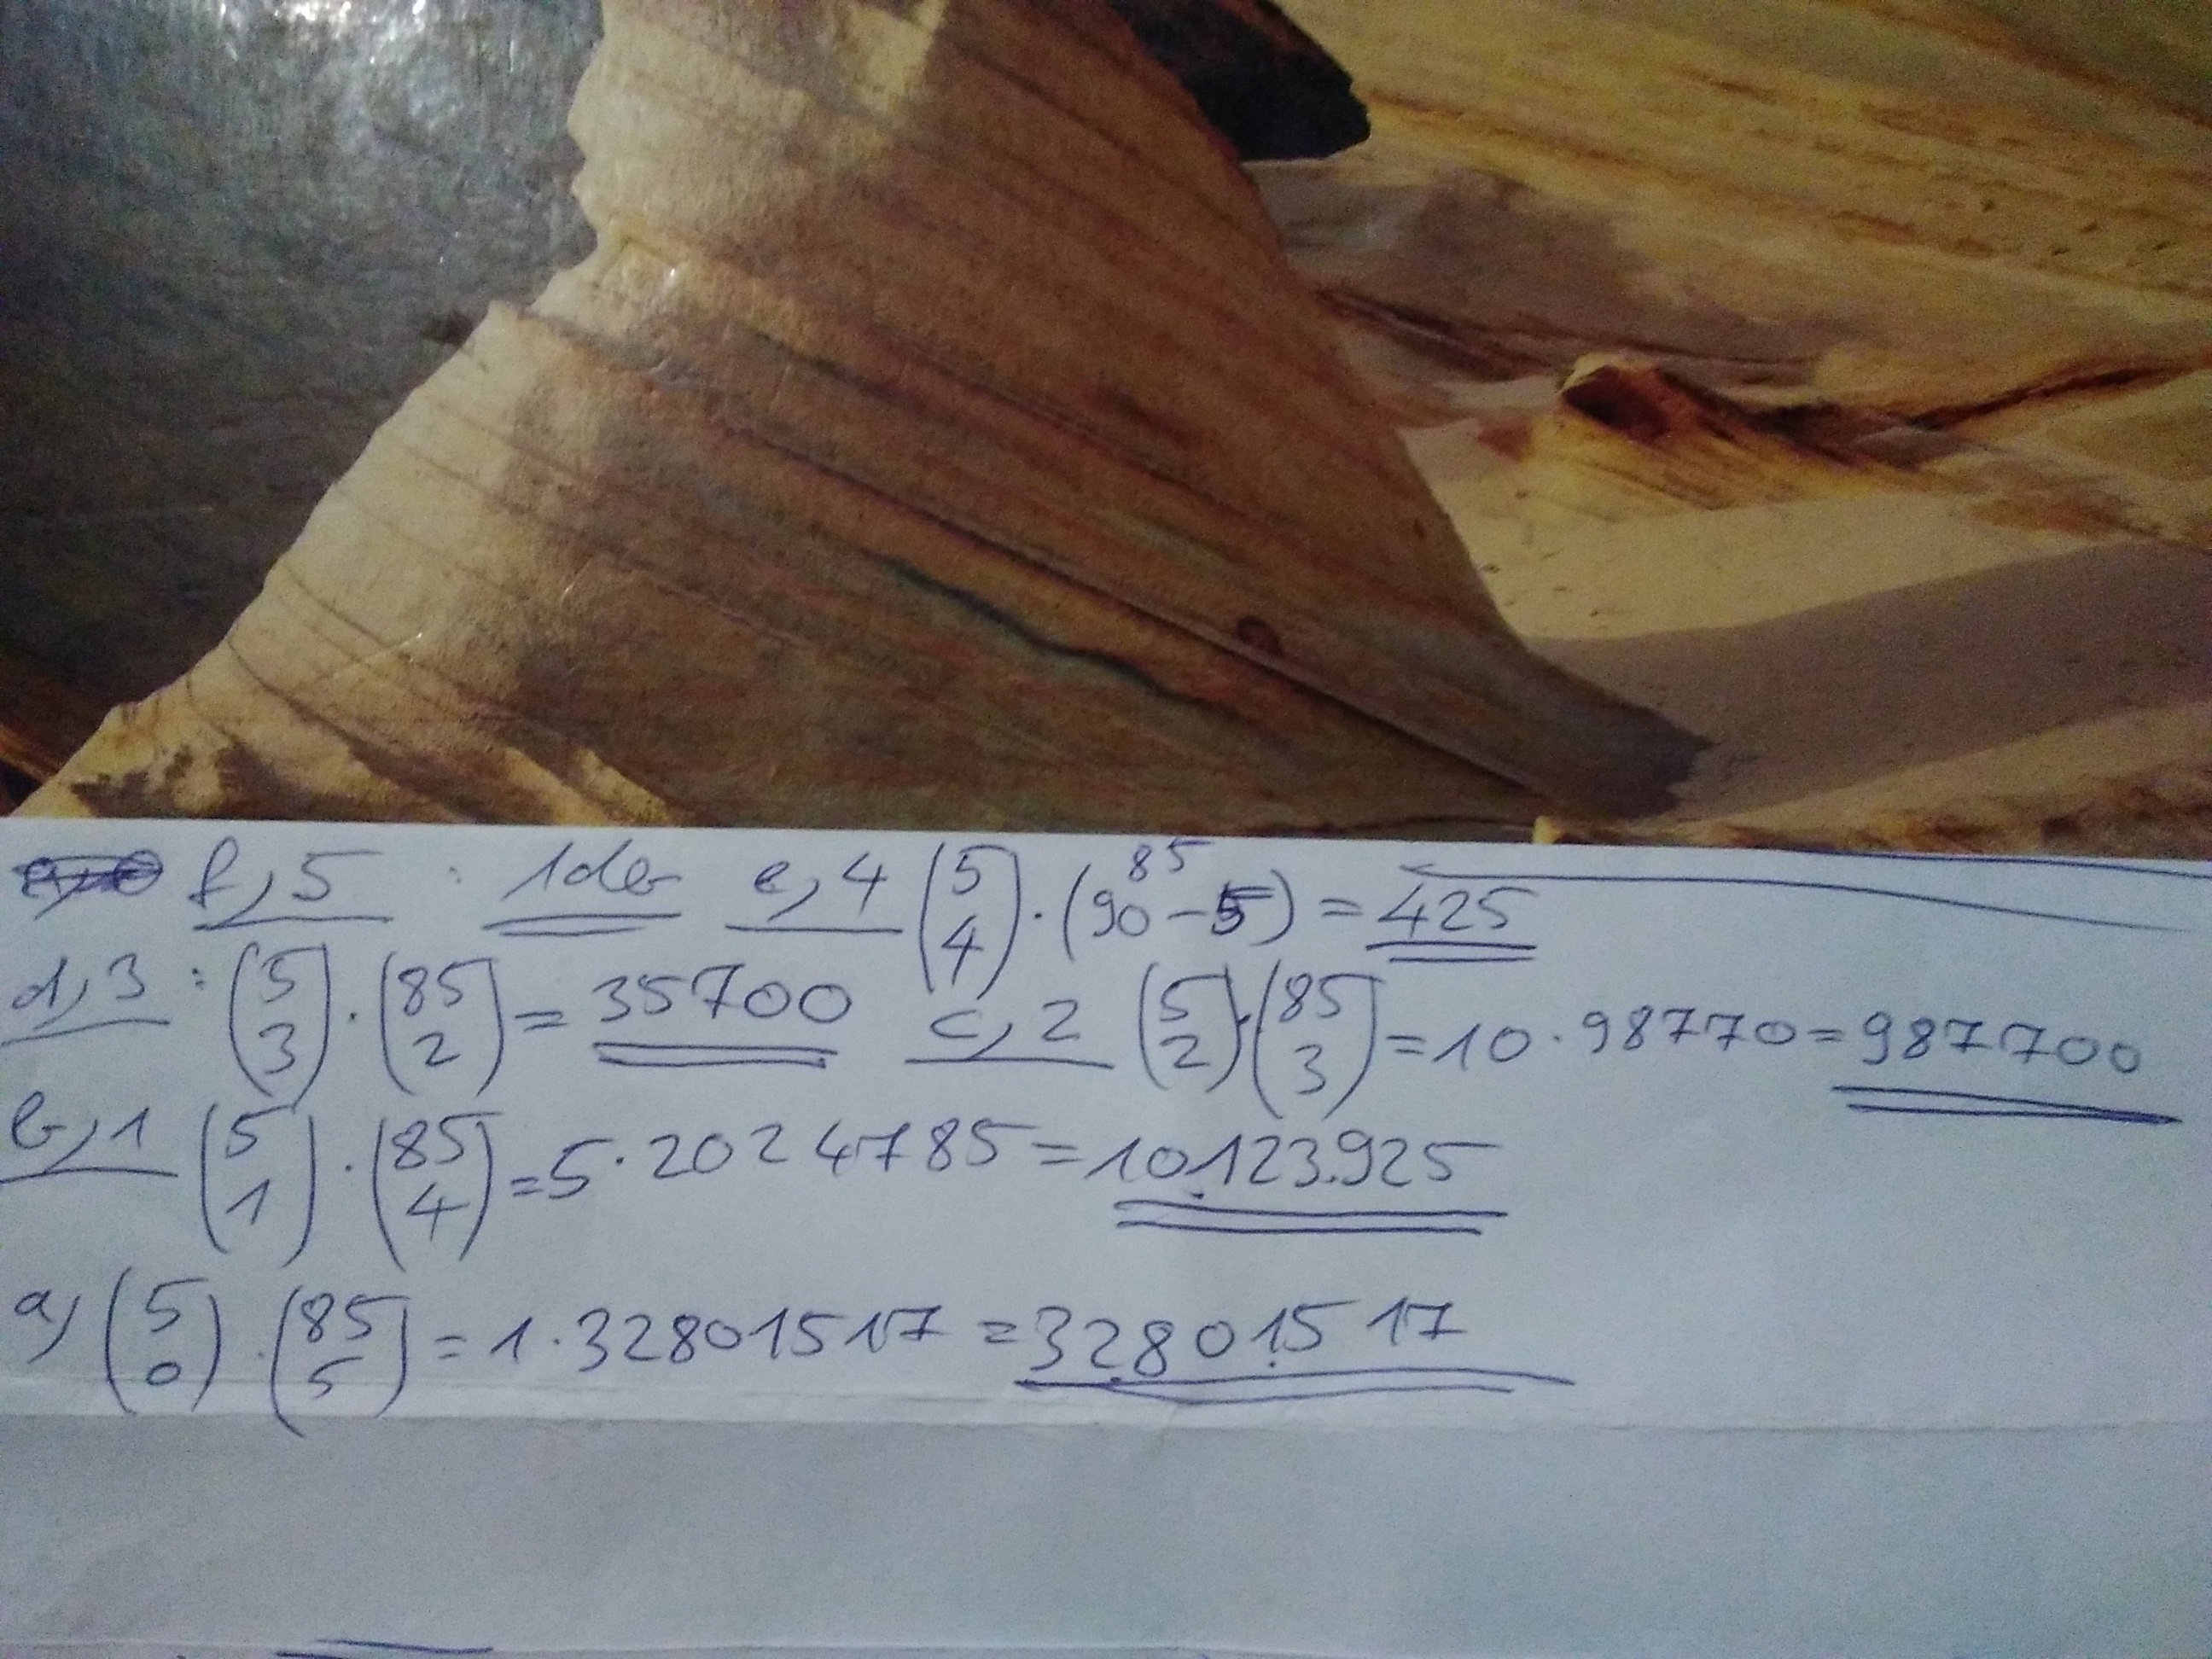 f, 5 : 1 db e, 4 (5 4) · (90 - 5) 85 = 425
d, 3 : (5 3) · (85 2) = 35700 c, 2 (5 2) · (85 3) = 10 · 98770 = 987700
b, 1 (5 1) · (85 4) = 5 · 2024785 = 10.123.925
a, (5 0) · (85 5) = 1 · 32801517 = 32.801.517